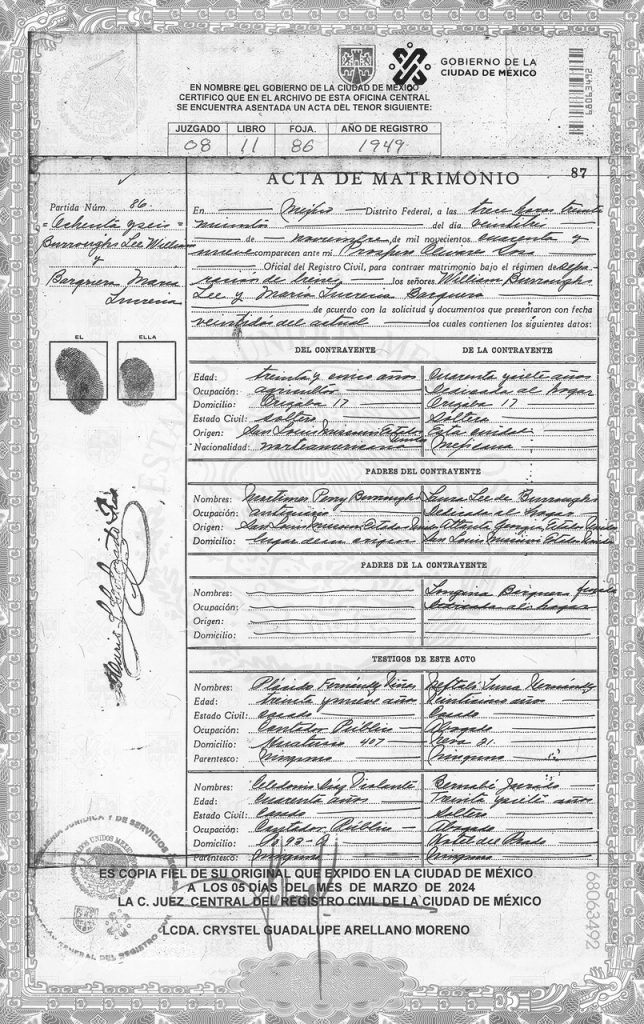 GOBIERNO DE LA
CIUDAD DE MÉXICO
EN NOMBRE DEL GOBIERNO DE LA CIUDAD DE MÉXICO
CERTIFICO QUE EN EL ARCHIVO DE ESTA OFICINA CENTRAL
SE ENCUENTRA ASENTADA UN ACTA DEL TENOR SIGUIENTE:
68063492
JUZGADO LIBRO FOJA. AÑO DE REGISTRO
08 11 86 1949
ACTA DE MATRIMONIO 87
Partida Núm. 86
Ochenta y seis
Burroughs Lee William
y
Barquera Maria
Lucrecia
EL ELLA
En Mejico Distrito Federal, a las trece horas treinta
minutos del día veintitres
de noviembre de mil novecientos cuarenta y
nueve comparecen ante mí Prospero Olivares Sosa
Oficial del Registro Civil, para contraer matrimonio bajo el régimen de sepa
ración de bienes los señores William Burroughs
Lee y Maria Lucrecia Barquera
de acuerdo con la solicitud y documentos que presentaron con fecha
veintidos del actual los cuales contienen los siguientes datos:
DEL CONTRAYENTE DE LA CONTRAYENTE
Edad: treinta y cinco años cuarenta y siete años
Ocupación: agricultor Dedicada al hogar
Domicilio: Orizaba 17 Orizaba 17
Estado Civil: soltero Soltera
Origen: San Louis Missouri Estados Unidos Esta ciudad
Nacionalidad: norteamericana Mejicana
PADRES DEL CONTRAYENTE
Nombres: Mortimer Perry Burroughs Laura Lee de Burroughs
Ocupación: anticuario Dedicada al hogar
Origen: San Louis Missouri Estados Unidos Atlanta Georgia Estados Unidos
Domicilio: lugar de su origen San Louis Missouri Estados Unidos
PADRES DE LA CONTRAYENTE
Nombres: Longina Barquera finada
Ocupación: Dedicada al hogar
Origen:
Domicilio:
TESTIGOS DE ESTE ACTO
Nombres: Plácido Fernández Neftalí Luna Hernández
Edad: treinta y nueve años años
Estado Civil: casado Casado
Ocupación: Contador Público Abogado
Domicilio: 407 21
Parentesco: Ninguno Ninguno
Nombres: Celedonio Díaz Bernabé Jurado
Edad: Cuarenta años Treinta y siete años
Estado Civil: Casado Soltero
Ocupación: Contador Público Abogado
Domicilio: Hotel del Prado
Parentesco: Ninguno Ninguno
ES COPIA FIEL DE SU ORIGINAL QUE EXPIDO EN LA CIUDAD DE MÉXICO
A LOS 05 DÍAS DEL MES DE MARZO DE 2024
LA C. JUEZ CENTRAL DEL REGISTRO CIVIL DE LA CIUDAD DE MÉXICO
LCDA. CRYSTEL GUADALUPE ARELLANO MORENO
68063492